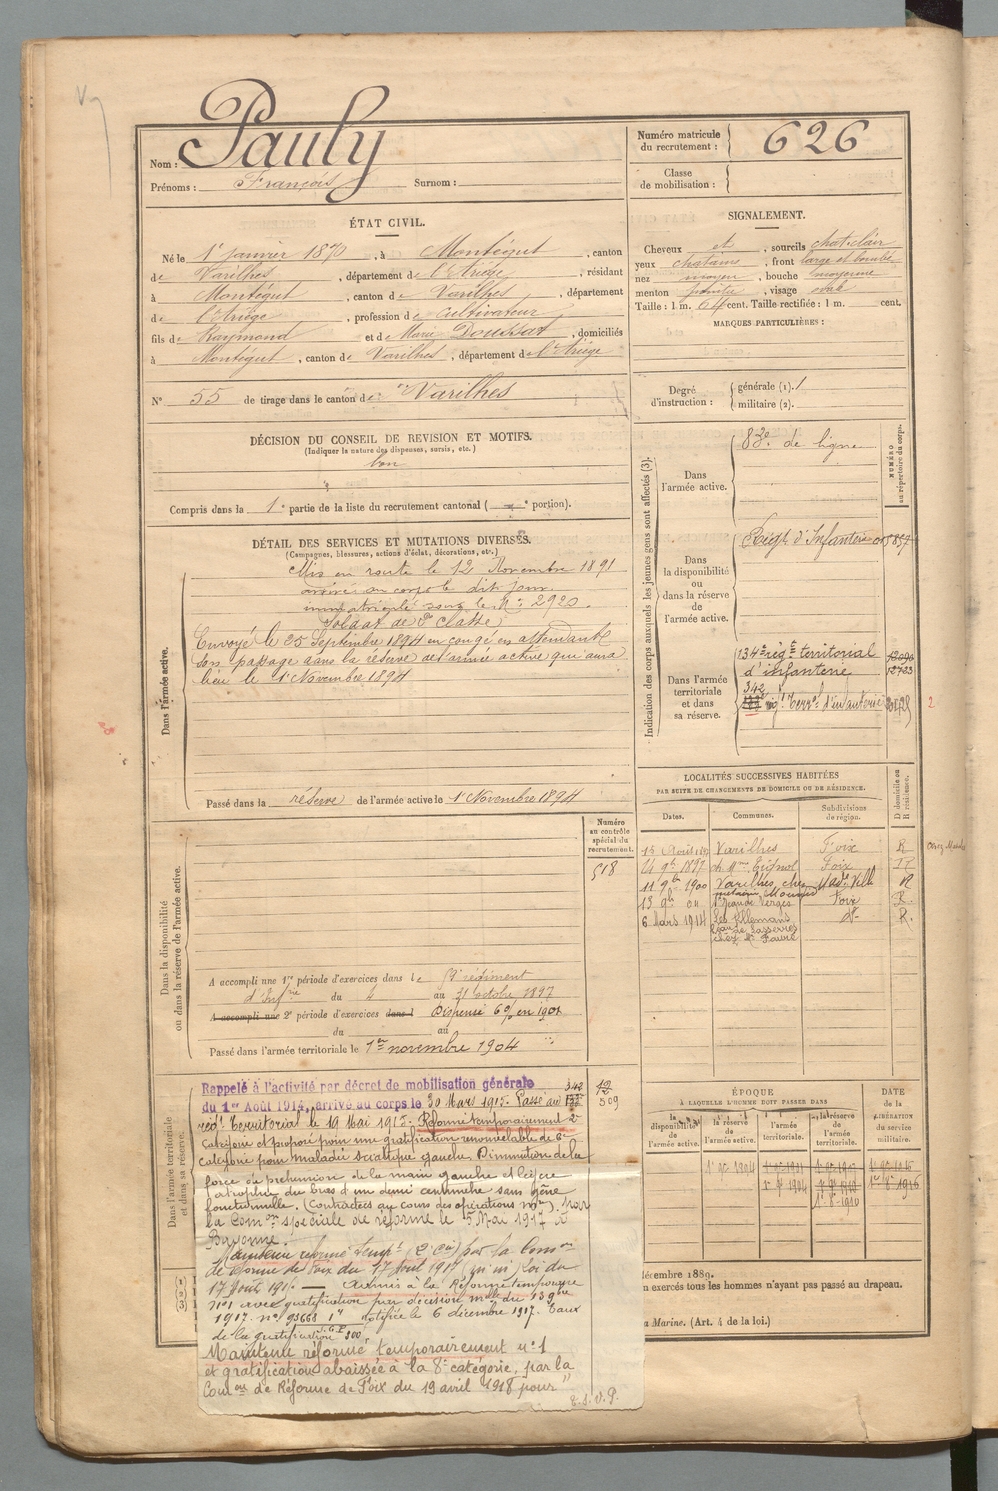 Nom : Pauly
Prénoms : François Surnom :
Numéro matricule du recrutement : 626
Classe de mobilisation :
ÉTAT CIVIL.
Né le 1er janvier 1870, à Montégut, canton
de Varilhes, département de l'Ariège, résidant
à Montégut, canton de Varilhes, département
de l'Ariège, profession de cultivateur
fils de Raymond et de Marie Doussat, domiciliés
à Montégut, canton de Varilhes, département de l'Ariège
N° 55 de tirage dans le canton de Varilhes
SIGNALEMENT.
Cheveux et, sourcils chat. clair
yeux chatains, front large et bombé
nez moyen, bouche moyenne
menton pointu, visage ovale
Taille : 1 m. 64 cent. Taille rectifiée : 1 m. cent.
MARQUES PARTICULIÈRES :
Degré d'instruction :
générale (1). 1
militaire (2).
DÉCISION DU CONSEIL DE REVISION ET MOTIFS.
(Indiquer la nature des dispenses, sursis, etc.)
bon
Compris dans la 1e partie de la liste du recrutement cantonal ( e portion).
DÉTAIL DES SERVICES ET MUTATIONS DIVERSES.
(Campagnes, blessures, actions d'éclat, décorations, etc.)
Dans l'armée active.
Mis en route le 12 Novembre 1891
arrivé au corps le dit jour.
immatriculé sous le N° 2920.
Soldat de 2e classe
Envoyé le 25 Septembre 1894 en congé en attendant
son passage dans la réserve de l'armée active qui aura
lieu le 1er Novembre 1894
Passé dans la réserve de l'armée active le 1er Novembre 1894
Indication des corps auxquels les jeunes gens sont affectés (3).
NUMÉRO au répertoire du corps.
Dans l'armée active.
83e de ligne
Dans la disponibilité ou dans la réserve de l'armée active.
Régt d'Infanterie
Dans l'armée territoriale et dans sa réserve.
134e régt territorial
d'infanterie
12723
342
régt Terral d'infanterie
2
LOCALITÉS SUCCESSIVES HABITÉES
PAR SUITE DE CHANGEMENTS DE DOMICILE OU DE RÉSIDENCE.
Dates. Communes. Subdivisions de région. D domicile ou R résidence.
15 Août Varilhes Foix R
14 9b 1897 ch. Mme Foix
11 9bre 1900 Varilhes chez R
13 9b Verges Foix R.
6 Mars 1914 Les Allemans do R.
chez Mr Faure
Dans la disponibilité ou dans la réserve de l'armée active.
Numéro au contrôle spécial du recrutement.
518
A accompli une 1re période d'exercices dans le régiment
d'Infrie du 4 au 31 octobre 1897
A accompli une 2e période d'exercices dans l Dispensé 6% en 1901
du au
Passé dans l'armée territoriale le 1er novembre 1904
Dans l'armée territoriale et dans sa réserve.
Rappelé à l'activité par décret de mobilisation générale
du 1er Août 1914, arrivé au corps le 30 Mars 1915. Passé au 342
régt Territorial le 19 Mai 1915. Réformé temporairement 2e
catégorie et proposé pour une gratification renouvelable de 6e
catégorie pour maladie sciatique gauche. Diminution de la
force de préhension de la main gauche et légère
atrophie du bras d'un demi centimètre sans gêne
fonctionnelle. (Contractées au cours des opérations mres). par
la Comon spéciale de réforme le 5 Mai 1917 à
Bayonne.
Maintenu réformé tempt (2e Cie) par la Comon
de réforme de Foix du 17 Août 1917
17 Août 191 — Admis à la Réforme temporaire
n°1 avec gratification par décision mlle du 13 9bre
1917. n° 93668 notifiée le 6 décembre 1917. Taux
de la gratification 300f
Maintenu réformé temporairement n°1
et gratification abaissée à la 8e catégorie, par la
Comon de Réforme de Foix du 19 avril 1918 pour "
T.S.V.P.
509
ÉPOQUE
À LAQUELLE L'HOMME DOIT PASSER DANS
la disponibilité de l'armée active. la réserve de l'armée active. l'armée territoriale. la réserve de l'armée territoriale.
DATE de la LIBÉRATION du service militaire.
1er 9e 1894
décembre 1889.
on exercés tous les hommes n'ayant pas passé au drapeau.
a Marine. (Art. 4 de la loi.)